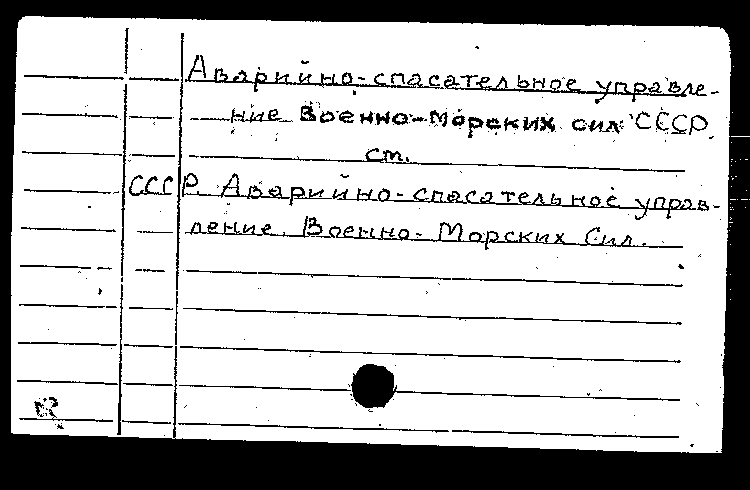 Аварийно-спасательное управле-
ние Военно-Морских сил СССР
ст.
СССР. Аварийно-спасательное управ-
ление. Военно-Морских Сил.